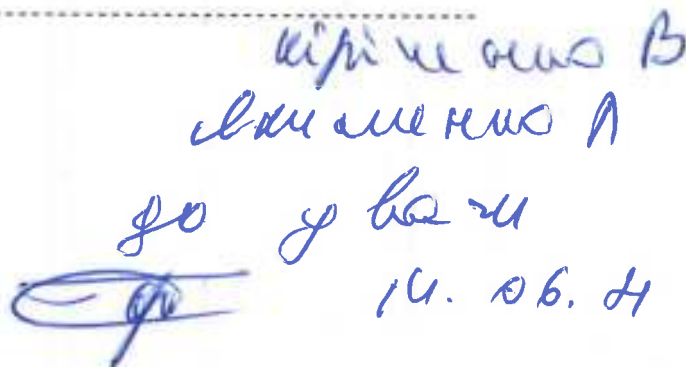 Кіріченко В
Якименко Л
до уваги
14. 06. 21